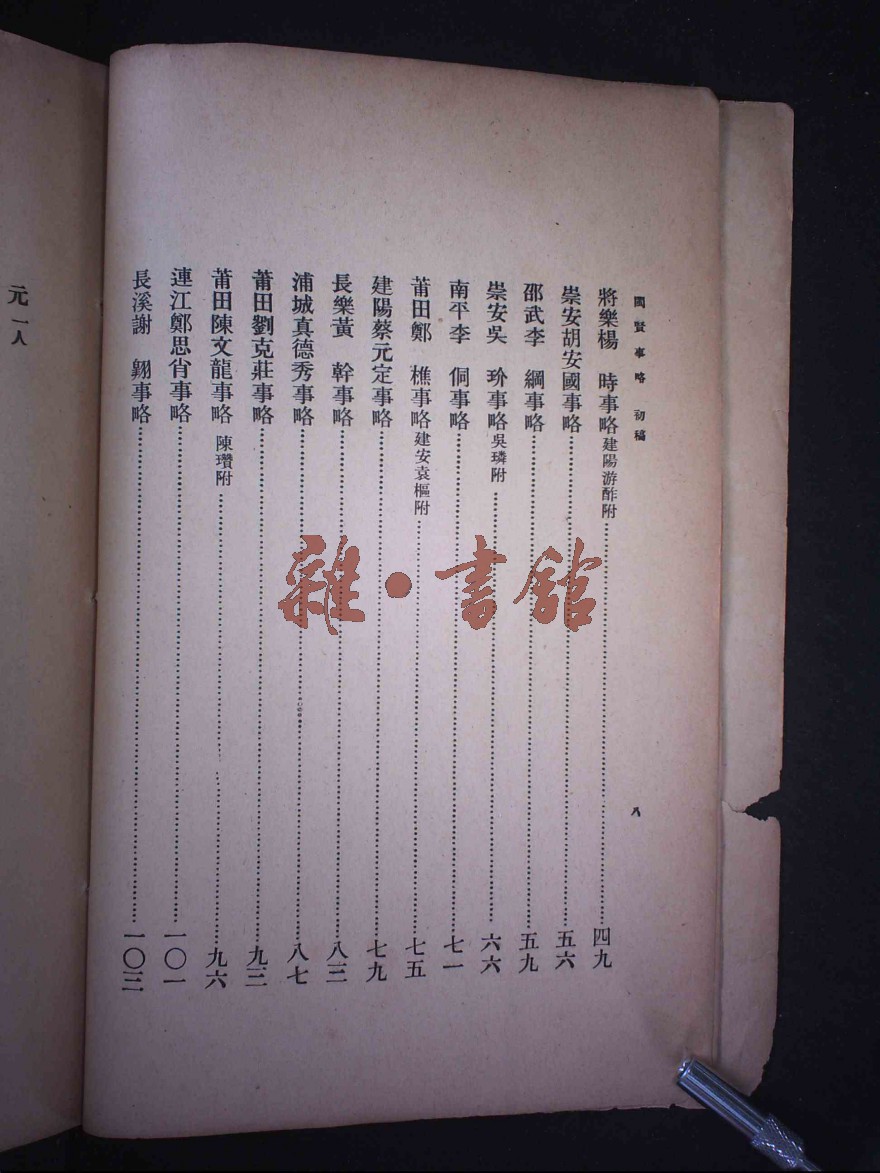 閩賢事略初稿
八
將樂楊　時事略建陽游酢附……四九
崇安胡安國事略……五六
邵武李　綱事略……五九
崇安吳　玠事略吳璘附……六六
南平李　侗事略……七一
莆田鄭　樵事略建安袁樞附……七五
建陽蔡元定事略……七九
長樂黃　幹事略……八三
浦城真德秀事略……八七
莆田劉克莊事略……九三
莆田陳文龍事略陳瓚附……九六
連江鄭思肖事略……一〇一
長溪謝　翱事略……一〇三
元一人
雜·書館